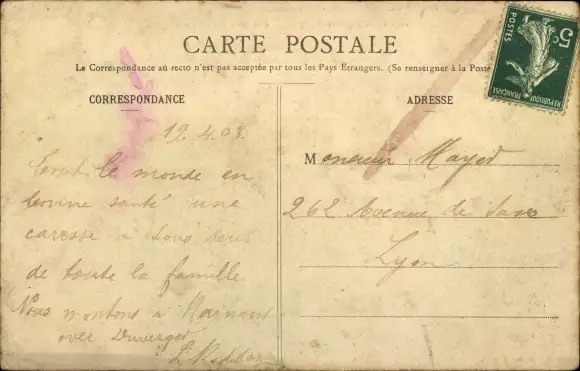 CARTE POSTALE
La Correspondance au recto n'est pas acceptée par tous les Pays Étrangers. (Se renseigner à la Poste
CORRESPONDANCE
19.4.03.
Tout le monde en
bonne santé une
caresse a tous
de toute la famille
Nous montons a
L.
ADRESSE
Monsieur Mayet
262 Avenue de Saxe
Lyon
5c
POSTES
REPUBLIQUE FRANÇAISE